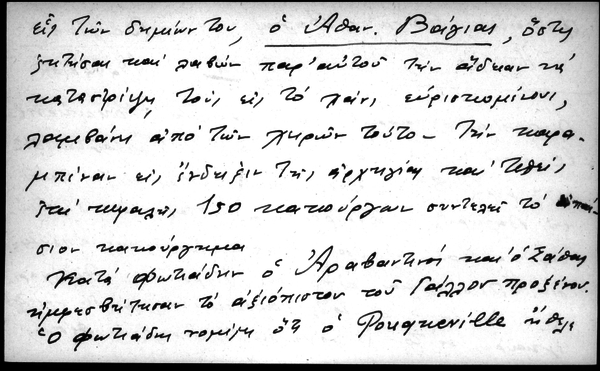 εἷς τῶν δημίων του, ὁ Ἀθαν. Βάγιας, ὅστις
ζητήσας καὶ λαβὼν παρ' αὐτοῦ τὴν ἄδειαν νὰ
κατασφάξῃ τοὺς εἰς τὸ χάνι εὑρισκομένους,
λαμβάνει ἀπὸ τῶν χειρῶν τούτου τὴν καρα-
μπίναν εἰς ἔνδειξιν τῆς ἀρχηγίας καὶ τεθεὶς
ἐπὶ κεφαλῆς 150 κακούργων συντελεῖ τὸ ἀπαί-
σιον κακούργημα
Κατὰ Φωτιάδην ὁ Ἀραβαντινός καὶ ὁ Σάθας
ἠμφεσβήτησαν τὸ ἀξιόπιστον τοῦ Γάλλου προξένου.
Ὁ Φωτιάδης νομίζει ὅτι ὁ Pouqueville ἤθελε